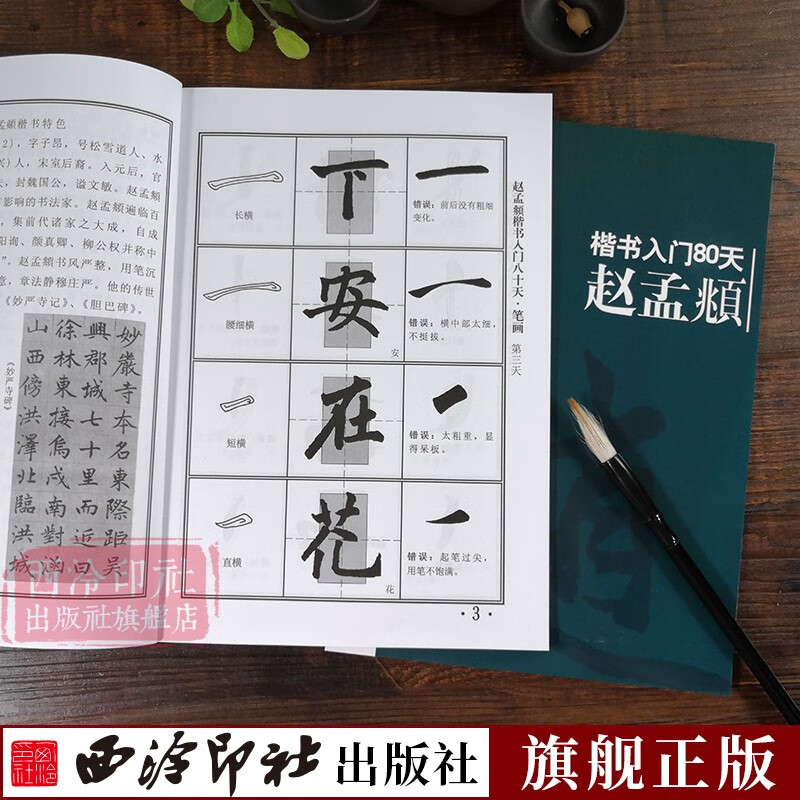 孟頫楷书特色
2),字子昂,号松雪道人、水
兴)人,宋室后裔。入元后,官
夫,封魏国公,谥文敏。赵孟頫
影响的书法家。赵孟頫遍临百
,集前代诸家之大成,自成
阳询、颜真卿、柳公权并称中
”。赵孟頫书风严整,用笔沉
意,章法静穆庄严。他的传世
《妙严寺记》、《胆巴碑》。
妙嚴寺本名東際距吴
興郡城七十里而近曰
徐林東接烏戍南對涵
山西傍洪澤北臨洪城
《妙严寺碑》
长横
下
错误:前后没有粗细
变化。
腰细横
安
安
错误:横中部太细,
不挺拔。
短横
在
错误:太粗重,显
得呆板。
直横
花
花
错误:起笔过尖,
用笔不饱满。
赵孟頫楷书入门八十天·笔画 第三天
·3·
楷书入门80天
赵孟頫
西泠印社
出版社旗舰店
西泠印社
西泠印社 出版社
旗舰正版